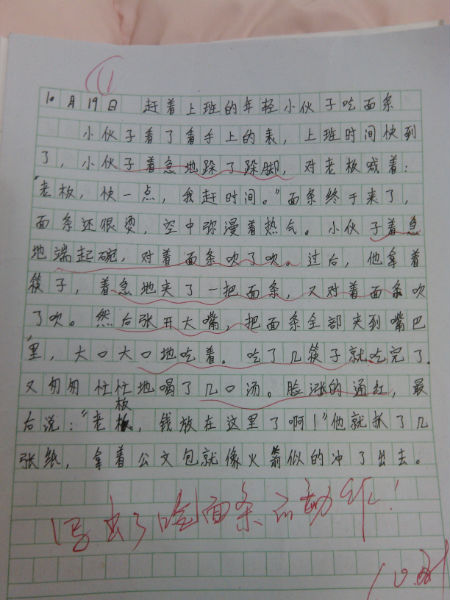 10月19日 赶着上班的年轻小伙子吃面条
小伙子看了看手上的表，上班时间快到
了，小伙子着急地跺了跺脚，对老板喊着：
"老板，快一点，我赶时间。"面条终于来了，
面条还很烫，空中弥漫着热气。小伙子着急
地端起碗，对着面条吹了吹。过后，他拿着
筷子，着急地夹了一把面条，又对着面条吹
了吹。然后张开大嘴，把面条全部夹到嘴巴
里，大口大口地吃着。吃了几筷子就吃完了。
又匆匆忙忙地喝了几口汤。脸涨的通红，最
后说："老板，钱放在这里了啊！"他就扒了几
张纸，拿着公文包就像火箭似的冲了出去。
写出了吃面条的动作！